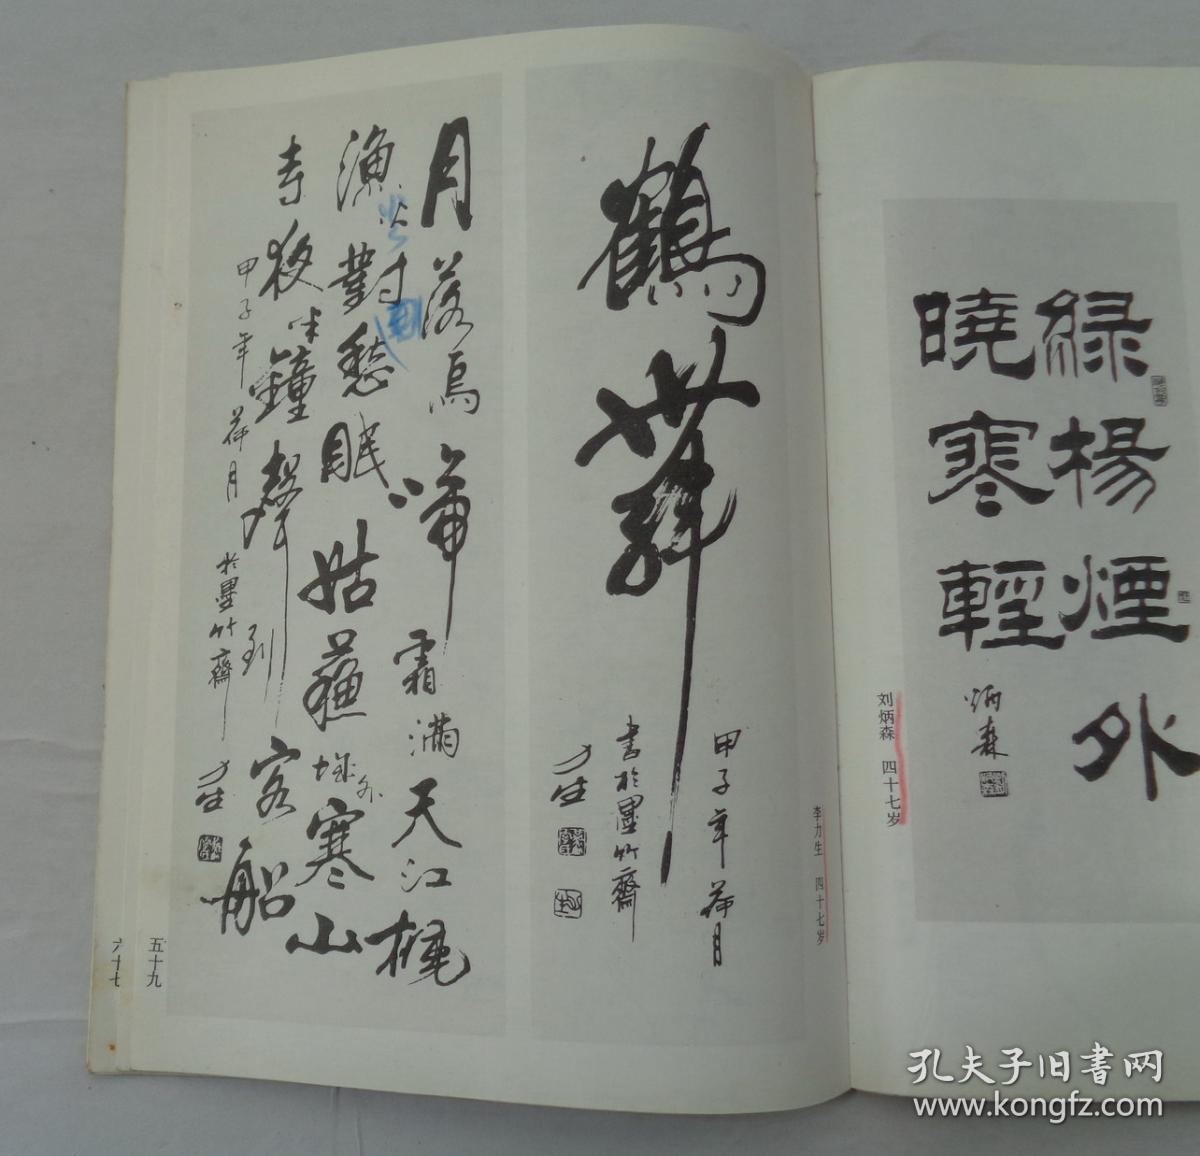 綠楊煙外
曉寒輕
炳森
刘炳森 四十七岁
鶴舞
甲子年荷月
書於墨竹齋
力生
李力生 四十七岁
月落烏啼霜滿天江楓
漁火對愁眠姑蘇城外寒山
寺夜半鐘聲到客船
甲子年荷月於墨竹齋
力生
五十九
六十七
孔夫子旧书网
www.kongfz.com